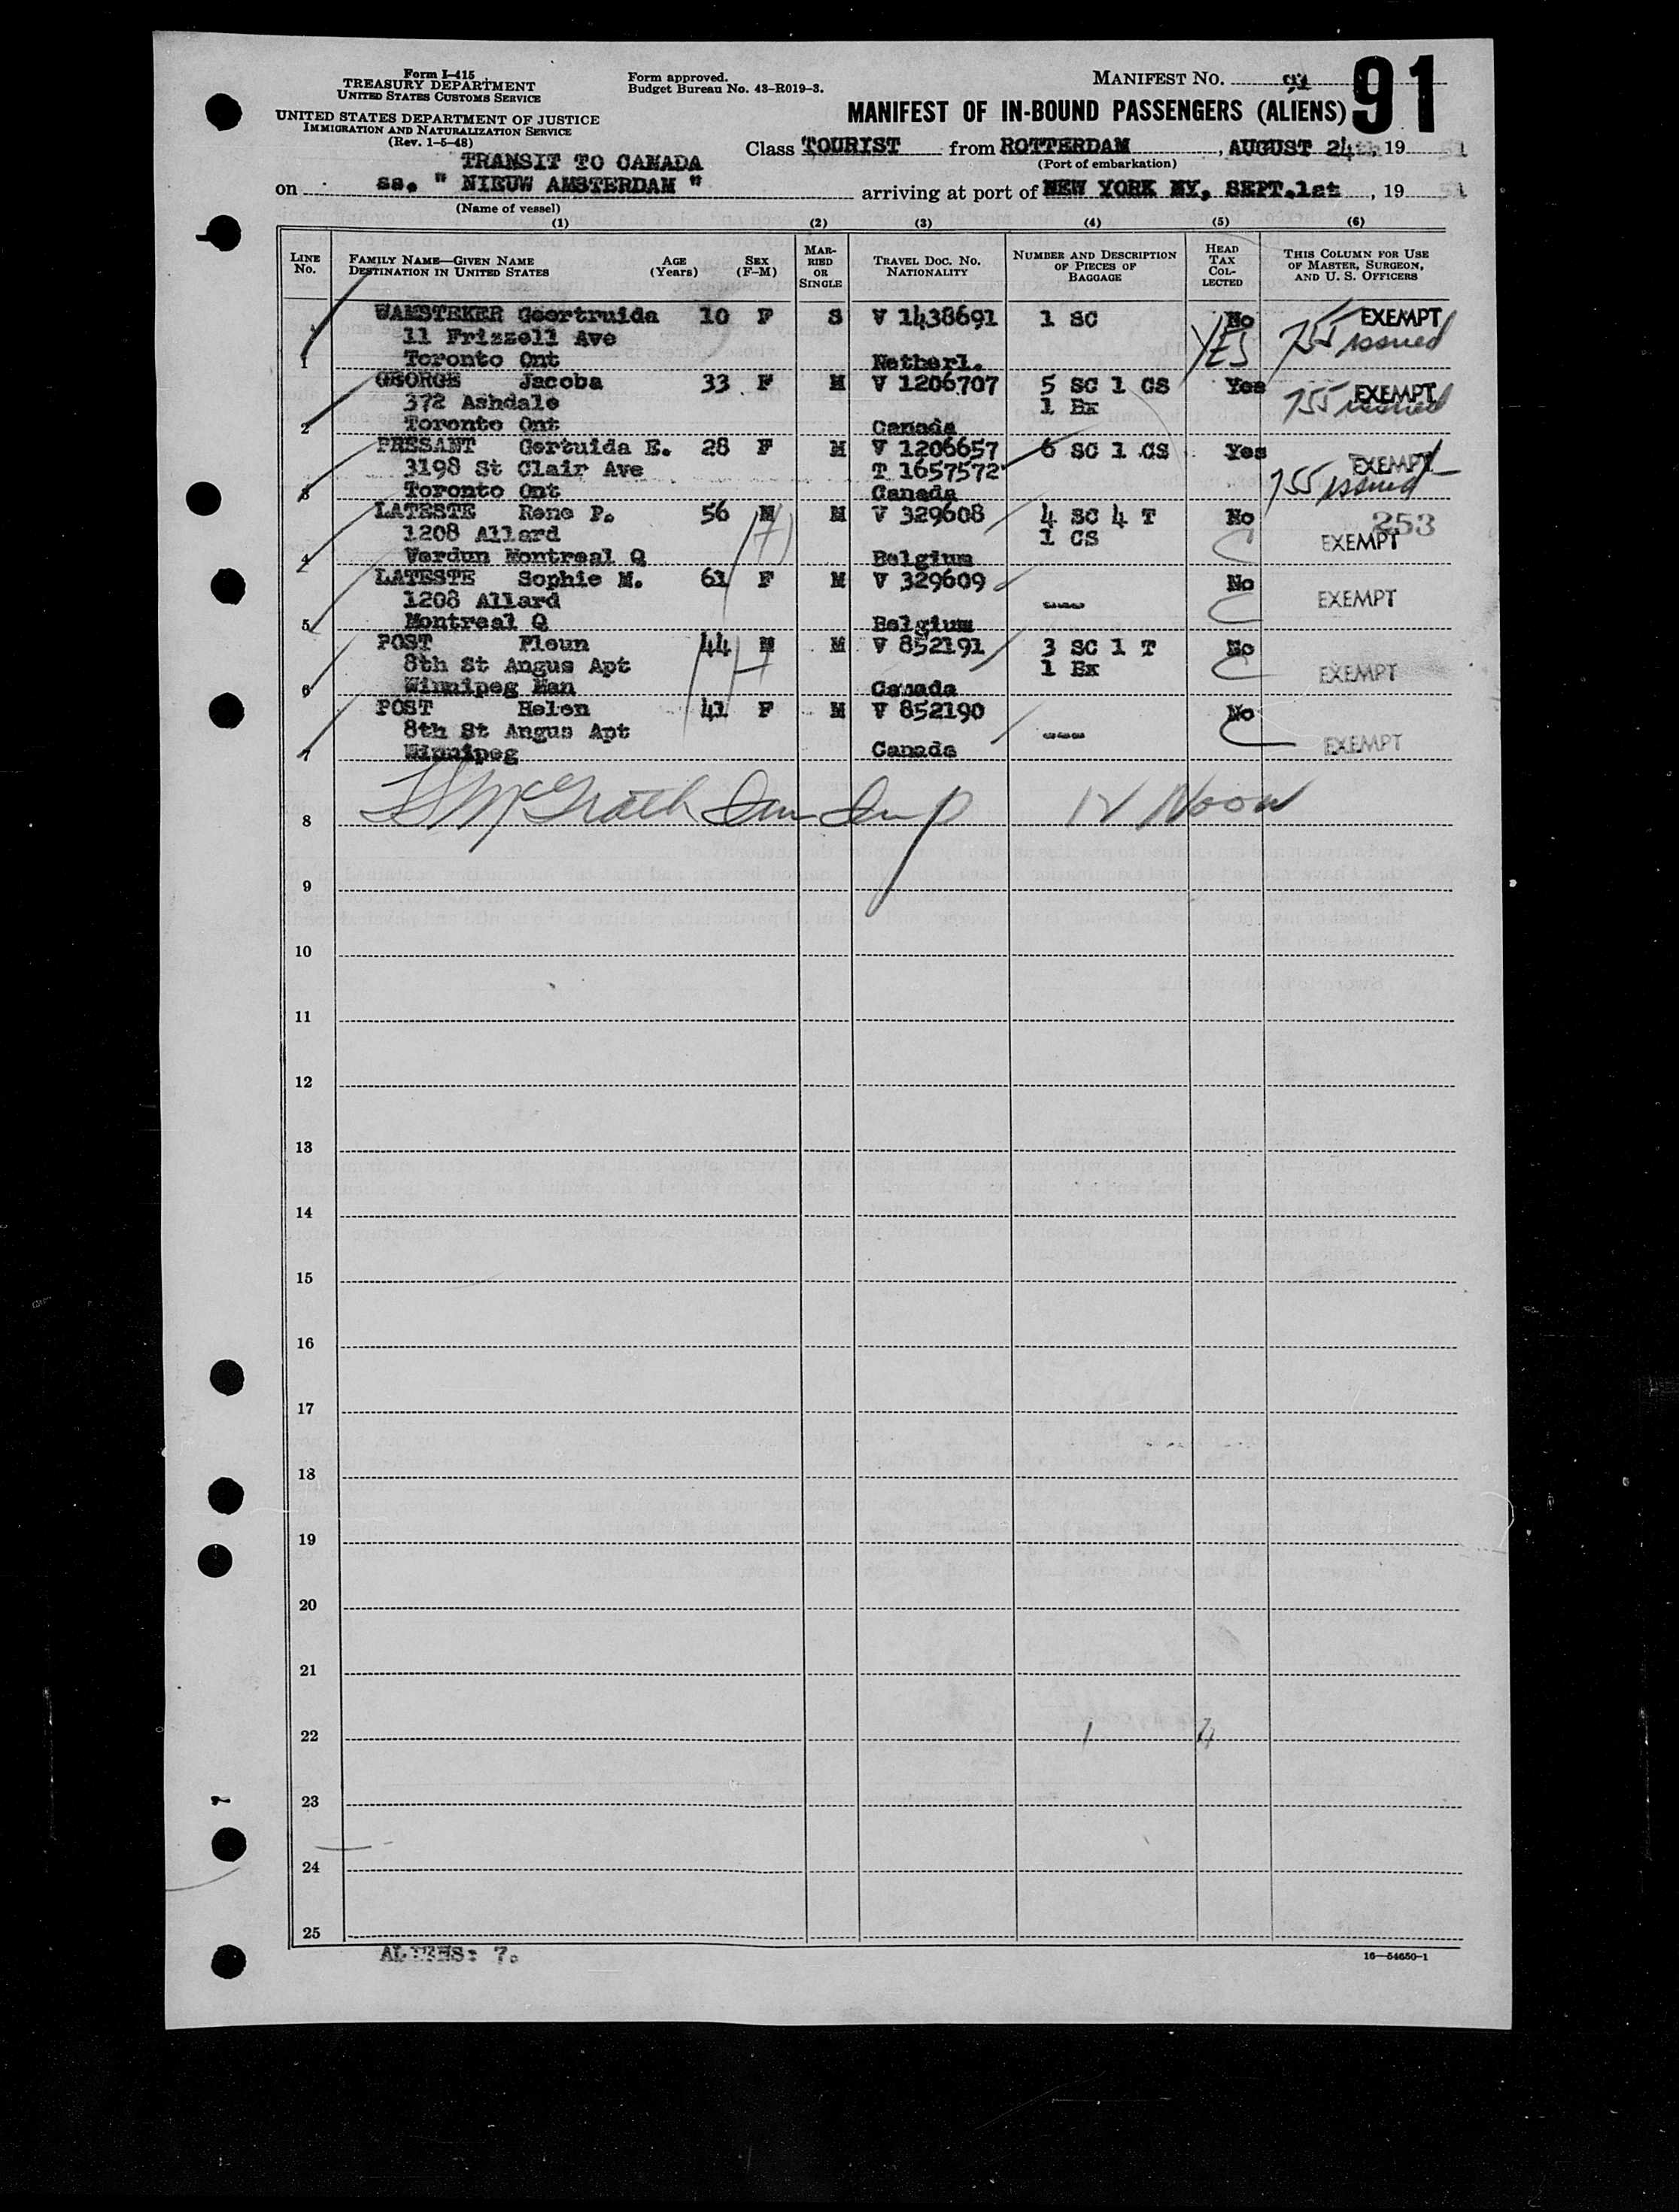 Form I-415
TREASURY DEPARTMENT
UNITED STATES CUSTOMS SERVICE
UNITED STATES DEPARTMENT OF JUSTICE
IMMIGRATION AND NATURALIZATION SERVICE
(Rev. 1-5-48)
Form approved.
Budget Bureau No. 43-R019-3.
MANIFEST NO. 91 91
MANIFEST OF IN-BOUND PASSENGERS (ALIENS)
Class TOURIST from ROTTERDAM, AUGUST 24th, 1951
(Port of embarkation)
TRANSIT TO CANADA
on ss. " NIEUW AMSTERDAM " arriving at port of NEW YORK NY, SEPT.1st, 1951
(Name of vessel)
(1) (2) (3) (4) (5) (6)
LINE No. FAMILY NAME—GIVEN NAME DESTINATION IN UNITED STATES AGE (Years) SEX (F-M) MARRIED OR SINGLE TRAVEL DOC. NO. NATIONALITY NUMBER AND DESCRIPTION OF PIECES OF BAGGAGE HEAD TAX COLLECTED THIS COLUMN FOR USE OF MASTER, SURGEON, AND U. S. OFFICERS
WAMSTEKER Geertruida 10 F S V 1438691 1 SC No EXEMPT
11 Frizzell Ave YES 755 issued
1 Toronto Ont Netherl.
GEORGE Jacoba 33 F M V 1206707 5 SC 1 CS Yes EXEMPT
372 Ashdale 1 Bx 755 issued
2 Toronto Ont Canada
PRESANT Gertuida E. 28 F M V 1206657 6 SC 1 CS Yes EXEMPT
3198 St Clair Ave T 1657572 755 issued
3 Toronto Ont Canada
LATESTE Rene P. 56 M M V 329608 4 SC 4 T No 253
1208 Allard 1 CS EXEMPT
4 Verdun Montreal Q Belgium
LATESTE Sophie M. 61 F M V 329609 No
1208 Allard --- EXEMPT
5 Montreal Q Belgium
POST Pleun 44 M M V 852191 3 SC 1 T No
8th St Angus Apt 1 Bx EXEMPT
6 Winnipeg Man Canada
POST Helen 41 F M V 852190 No
8th St Angus Apt --- EXEMPT
7 Winnipeg Canada
McGrath 12 Noon
8
9
10
11
12
13
14
15
16
17
18
19
20
21
22 1 4
23
24
25
ALIENS: 7.
16—54650-1